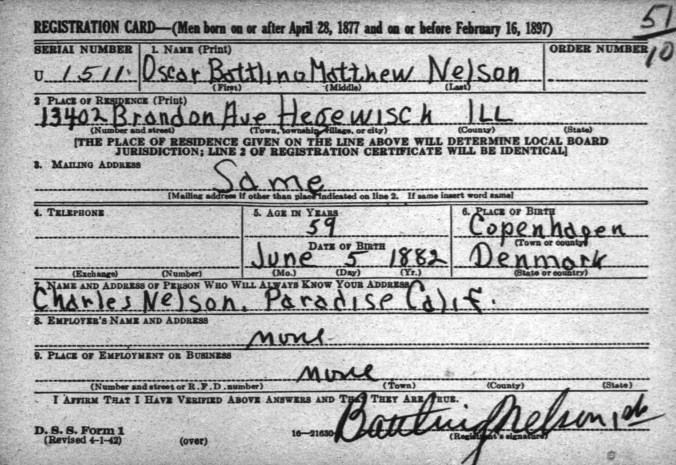 51
10
REGISTRATION CARD—(Men born on or after April 28, 1877 and on or before February 16, 1897)
SERIAL NUMBER 1. NAME (Print) ORDER NUMBER
U 1511 Oscar Battling Matthew Nelson
(First) (Middle) (Last)
2. PLACE OF RESIDENCE (Print)
13402 Brandon Ave Hegewisch ILL
(Number and street) (Town, township, village, or city) (County) (State)
[THE PLACE OF RESIDENCE GIVEN ON THE LINE ABOVE WILL DETERMINE LOCAL BOARD
JURISDICTION; LINE 2 OF REGISTRATION CERTIFICATE WILL BE IDENTICAL]
3. MAILING ADDRESS
Same
[Mailing address if other than place indicated on line 2. If same insert word same]
4. TELEPHONE 5. AGE IN YEARS 6. PLACE OF BIRTH
59 Copenhagen
DATE OF BIRTH (Town or county)
June 5 1882 Denmark
(Exchange) (Number) (Mo.) (Day) (Yr.) (State or country)
7. NAME AND ADDRESS OF PERSON WHO WILL ALWAYS KNOW YOUR ADDRESS
Charles Nelson. Paradise Calif.
8. EMPLOYER'S NAME AND ADDRESS
none
9. PLACE OF EMPLOYMENT OR BUSINESS
none
(Number and street or R. F. D. number) (Town) (County) (State)
I AFFIRM THAT I HAVE VERIFIED ABOVE ANSWERS AND THAT THEY ARE TRUE.
Battling Nelson
D. S. S. Form 1 16—21630 (Registrant's signature)
(Revised 4-1-42) (over)